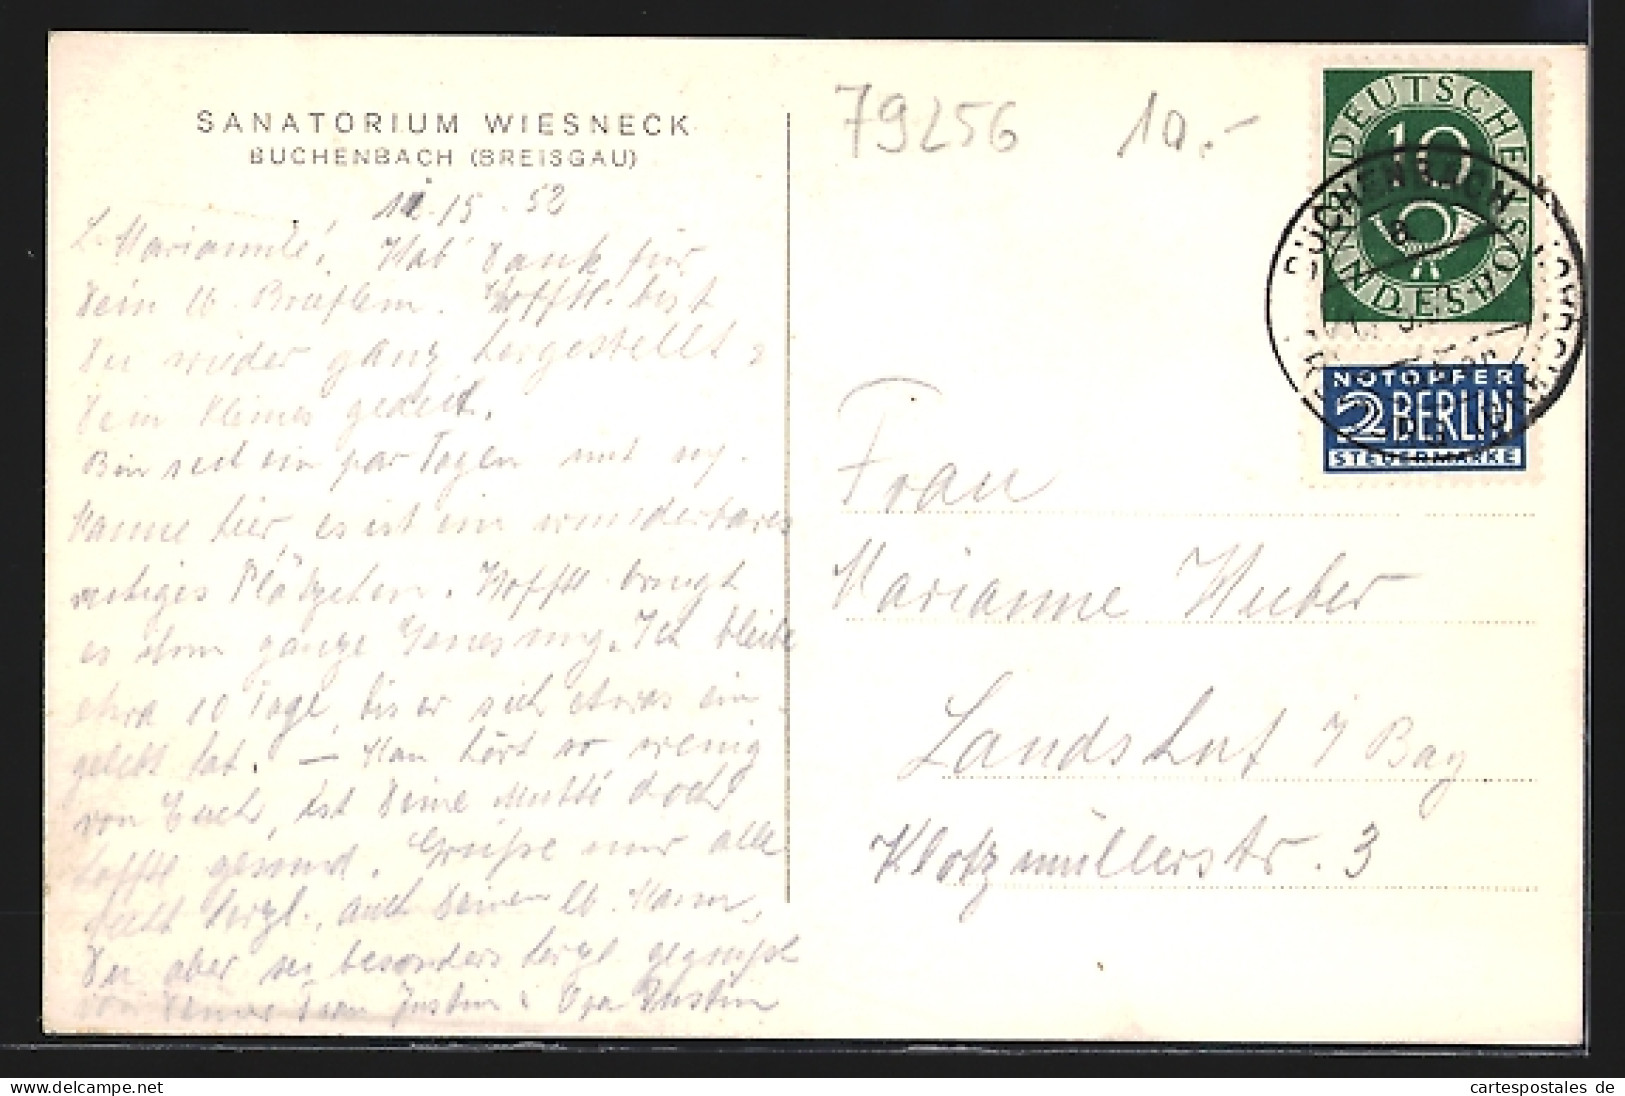 SANATORIUM WIESNECK
BUCHENBACH (BREISGAU)
15. 52
L. Mariannele! Hab' Dank für
Dein lb. Brieflein. Hofftl. bist
Du wieder ganz hergestellt &
Dein Kleines gedeit.
Bin seit ein par Tagen mit
Manne hier, es ist ein wunderbares
ruhiges Plätzchen. Hofftl. bringt
es ihm ganze Genesung. Ich bleibe
etwa 10 Tage, bis er sich etwas ein-
gelebt hat. — Man hört so wenig
von Euch, ist Deine Mutti doch
hofftl. gesund. Grüße mir alle
recht herzl., auch Deinen lb. Mann,
Du aber sei besonders herzl. gegrüßt
von Deiner Justin & Opa Justin
79256 10.-
DEUTSCHE BUNDESPOST
10
BUCHENBACH
NOTOPFER
2 BERLIN
STEUERMARKE
Frau
Marianne Huber
Landshut i/ Bay
Klotzmüllerstr. 3
the-delcampe.net
cartespostales de